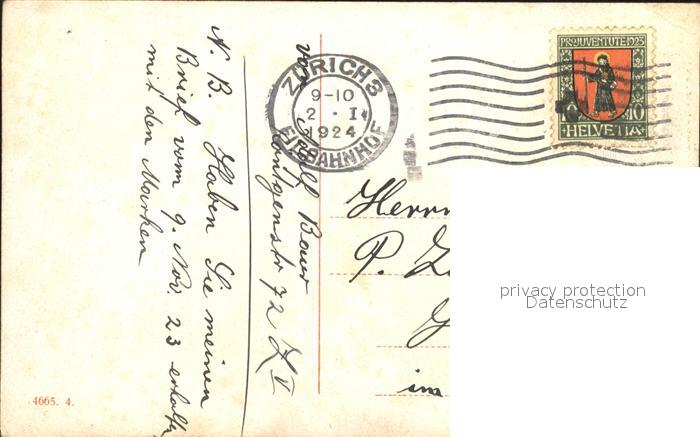 N. B. Haben Sie meinen
Brief vom 9. Nov. 23 erhalten
mit den Marken
von
Bauer
72 Z V
ZÜRICH 3
9-10
2 · I
1924
BAHNHOF
PRO JUVENTUTE 1923
10
HELVETIA
Herrn
P.
im
privacy protection
Datenschutz
4665. 4.